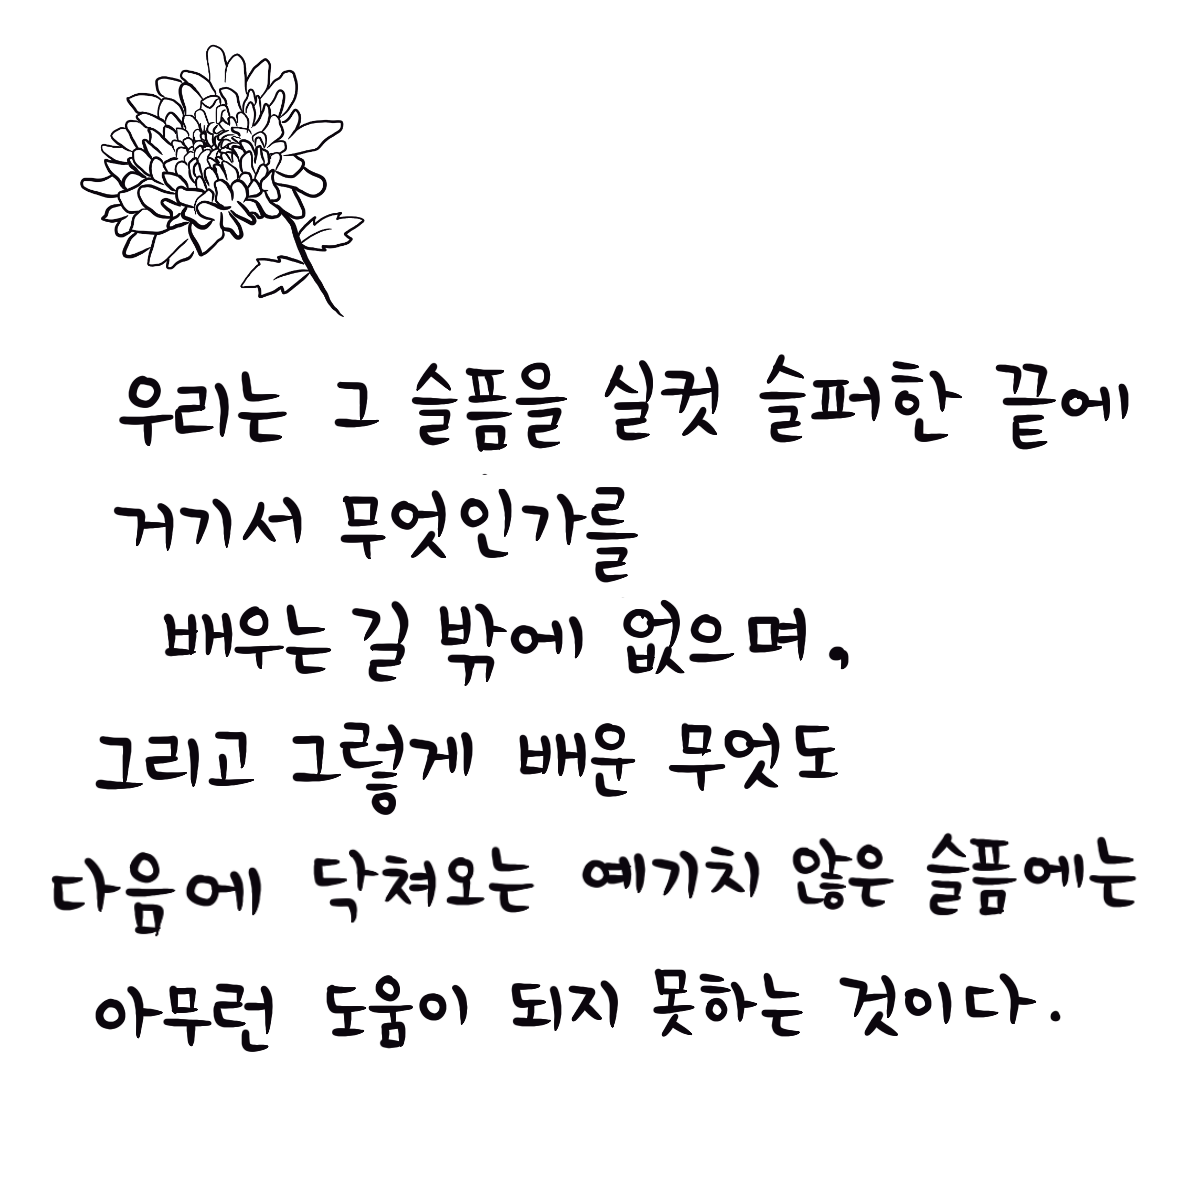 우리는 그 슬픔을 실컷 슬퍼한 끝에
거기서 무엇인가를
배우는 길 밖에 없으며,
그리고 그렇게 배운 무엇도
다음에 닥쳐오는 예기치 않은 슬픔에는
아무런 도움이 되지 못하는 것이다.